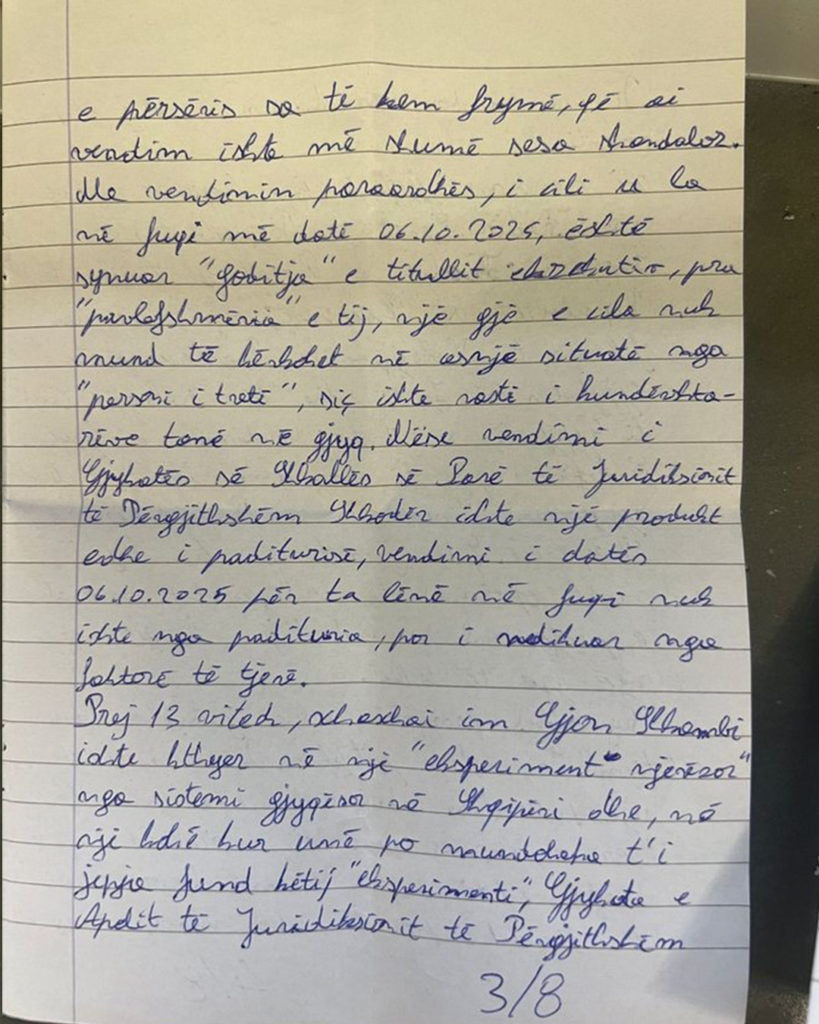 e përsëris sa të kem frymë, që ai
vendim ishte më shumë sesa skandaloz.
Me vendimin paraardhës, i cili u la
në fuqi më datë 06.10.2025, është
synuar "goditja" e titullit ekzekutiv, pra
"pavlefshmëria" e tij, një gjë e cila nuk
mund të kërkohet në asnjë situatë nga
"personi i tretë", siç ishte rasti i kundërshta-
rëve tanë në gjyq. Nëse vendimi i
Gjykatës së Shkallës së Parë të Juridiksionit
të Përgjithshëm Shkodër ishte një produkt
edhe i paditurisë, vendimi i datës
06.10.2025 për ta lënë në fuqi nuk
ishte nga padituria, por i ndikuar nga
faktorë të tjerë.
Prej 13 vitesh, xhaxhai im Gjon Shkambi
ishte kthyer në një "eksperiment njerëzor"
nga sistemi gjyqësor në Shqipëri dhe, në
një kohë kur unë po mundohesha t'i
jepja fund këtij "eksperimenti", Gjykata e
Apelit të Juridiksionit të Përgjithshëm
3/8